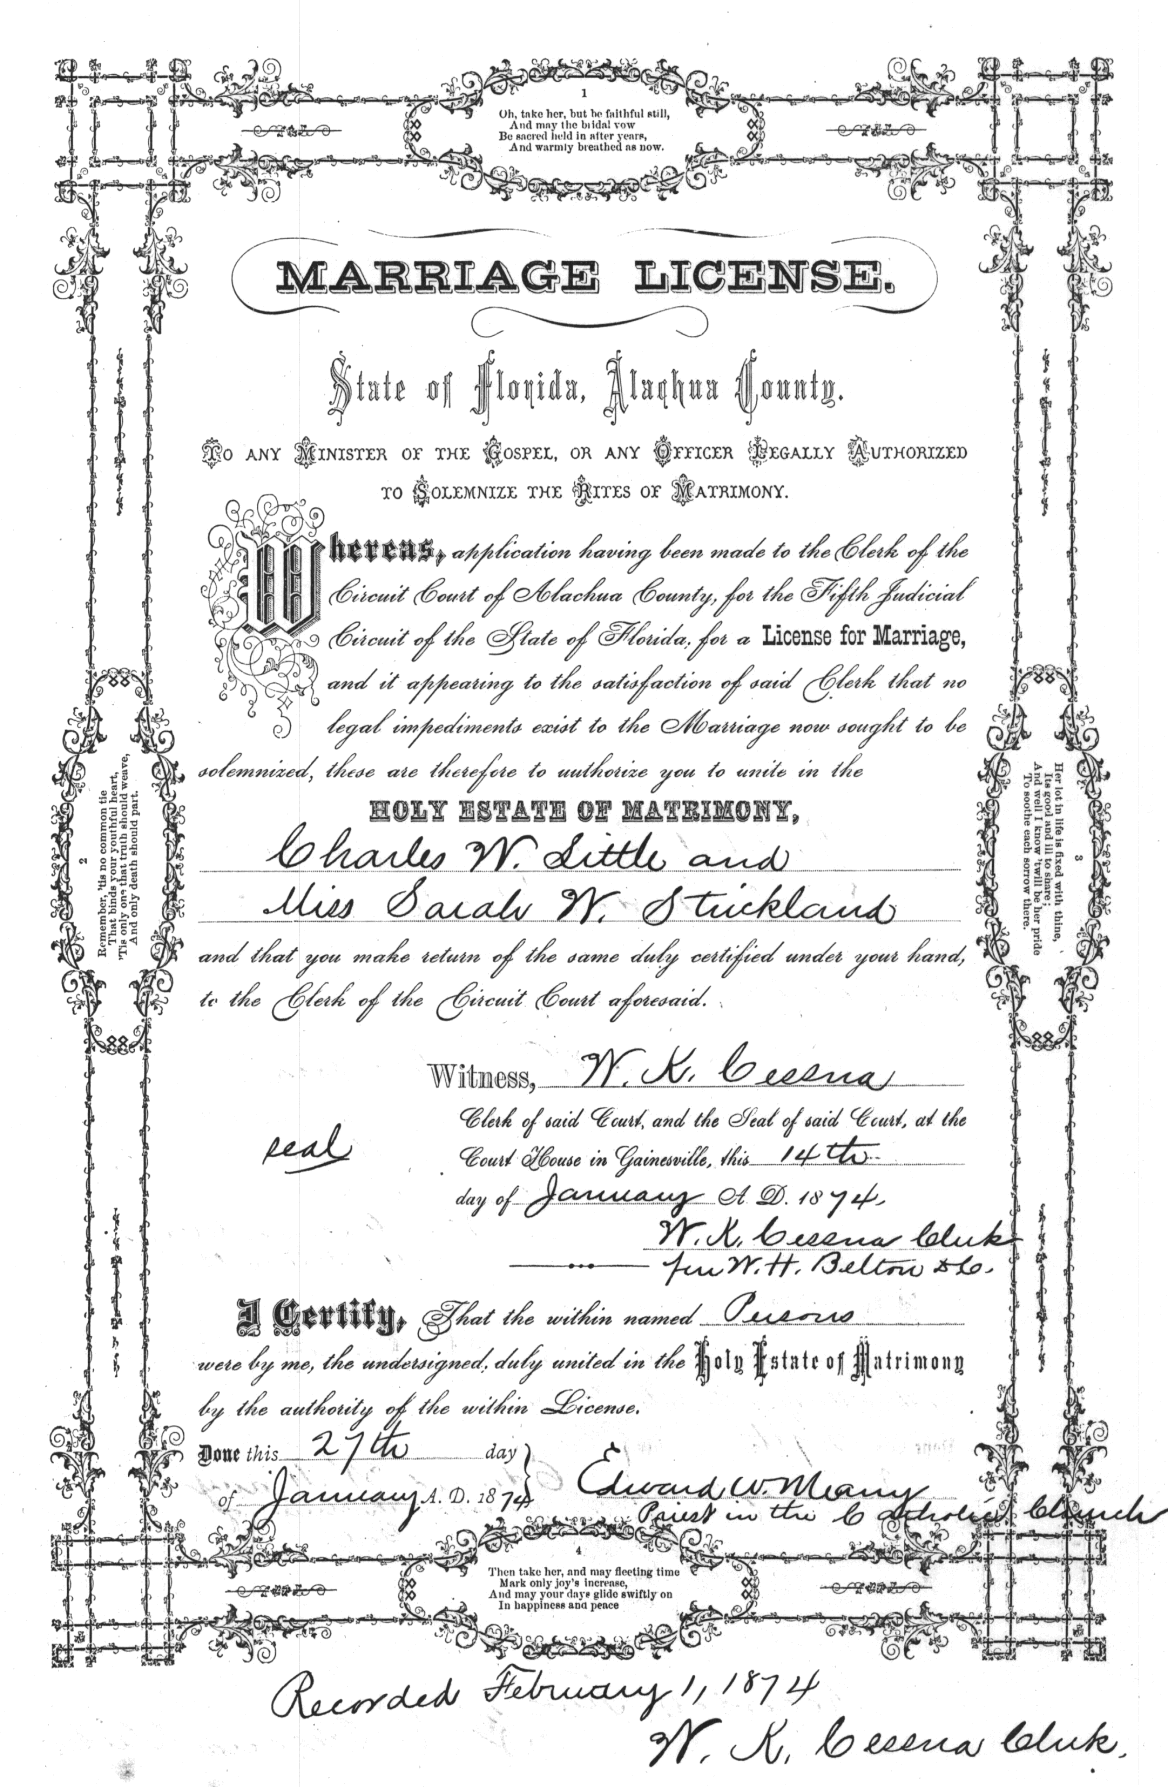 1
Oh, take her, but be faithful still,
And may the bridal vow
Be sacred held in after years,
And warmly breathed as now.
MARRIAGE LICENSE.
State of Florida, Alachua County.
TO ANY MINISTER OF THE GOSPEL, OR ANY OFFICER LEGALLY AUTHORIZED
TO SOLEMNIZE THE RITES OF MATRIMONY.
Whereas, application having been made to the Clerk of the
Circuit Court of Alachua County, for the Fifth Judicial
Circuit of the State of Florida, for a License for Marriage,
and it appearing to the satisfaction of said Clerk that no
legal impediments exist to the Marriage now sought to be
solemnized, these are therefore to authorize you to unite in the
HOLY ESTATE OF MATRIMONY,
Charles W. Little and
Miss Sarah W. Strickland
and that you make return of the same duly certified under your hand,
to the Clerk of the Circuit Court aforesaid.
2
Remember, 'tis no common tie
That binds your youthful heart,
'Tis only one that truth should weave,
And only death should part.
3
Her lot in life is fixed with thine,
Its good and ill to share;
And well I know 'twill be her pride
To soothe each sorrow there.
Witness, W. K. Cessna
Clerk of said Court, and the Seal of said Court, at the
seal
Court House in Gainesville, this 14th
day of January A. D. 1874.
W. K. Cessna Clerk
per W. H. Belton D C.
I Certify, That the within named Persons
were by me, the undersigned, duly united in the Holy Estate of Matrimony
by the authority of the within License.
Done this 27th day
of January A. D. 1874
Edward W. Meany
Priest in the Catholic Church
4
Then take her, and may fleeting time
Mark only joy's increase,
And may your days glide swiftly on
In happiness and peace
Recorded February 1, 1874
W. K. Cessna Clerk.